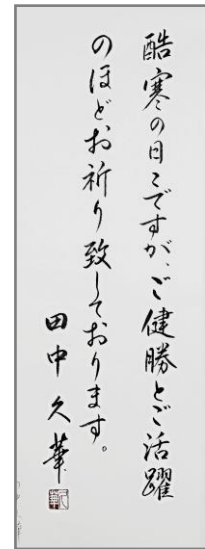 酷寒の日々ですが、ご健勝とご活躍
のほどお祈り致しております。
田中久華